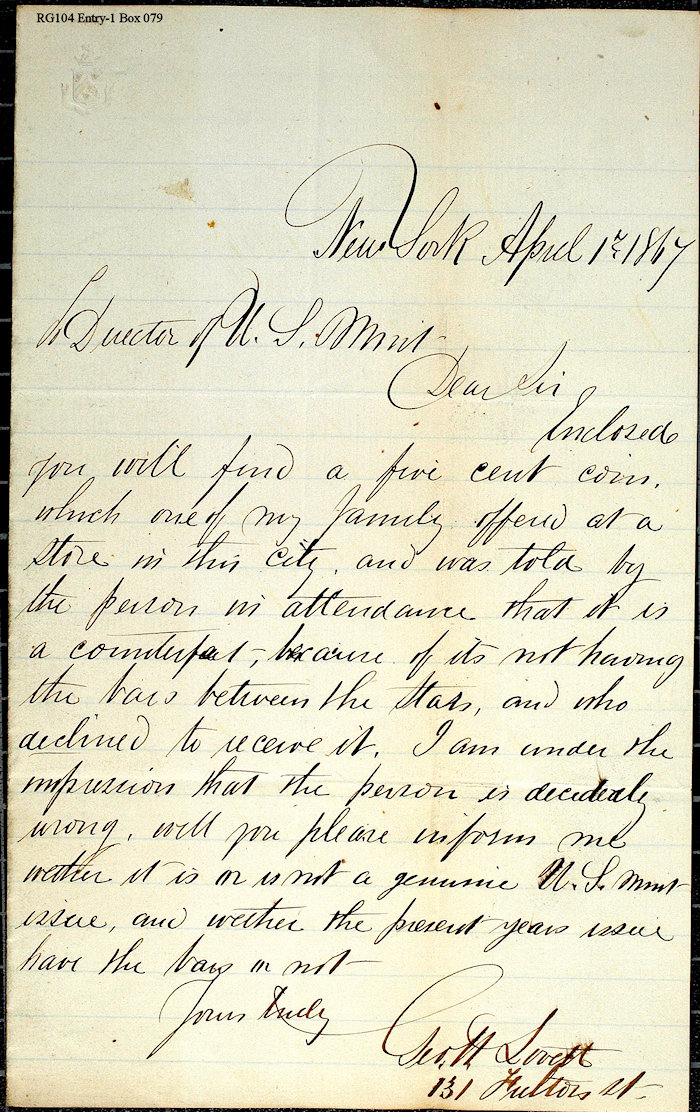 RG104 Entry-1 Box 079
New York April 17. 1867
To Director of U. S. Mint
Dear Sir
Enclosed
you will find a five cent coin,
which one of my family offered at a
store in this city, and was told by
the person in attendance that it is
a counterfeit, because of its not having
the bars between the stars, and who
declined to receive it. I am under the
impression that the person is decidedly
wrong, will you please inform me
wether it is or is not a genuine U. S. Mint
issue, and wether the present years issue
have the bars or not
Yours truly
Geo. H. Lovett
131 Fulton st